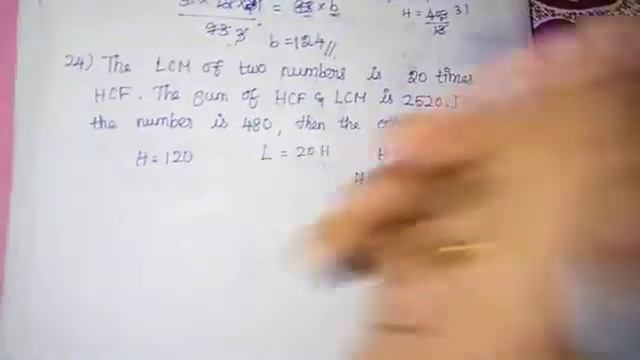 = 93 × b
93 3
b = 124 //
H =
31
24) The LCM of two numbers is 20 times
HCF. The sum of HCF & LCM is 2520. I
the number is 480, then the
H = 120 L = 20 H H
H